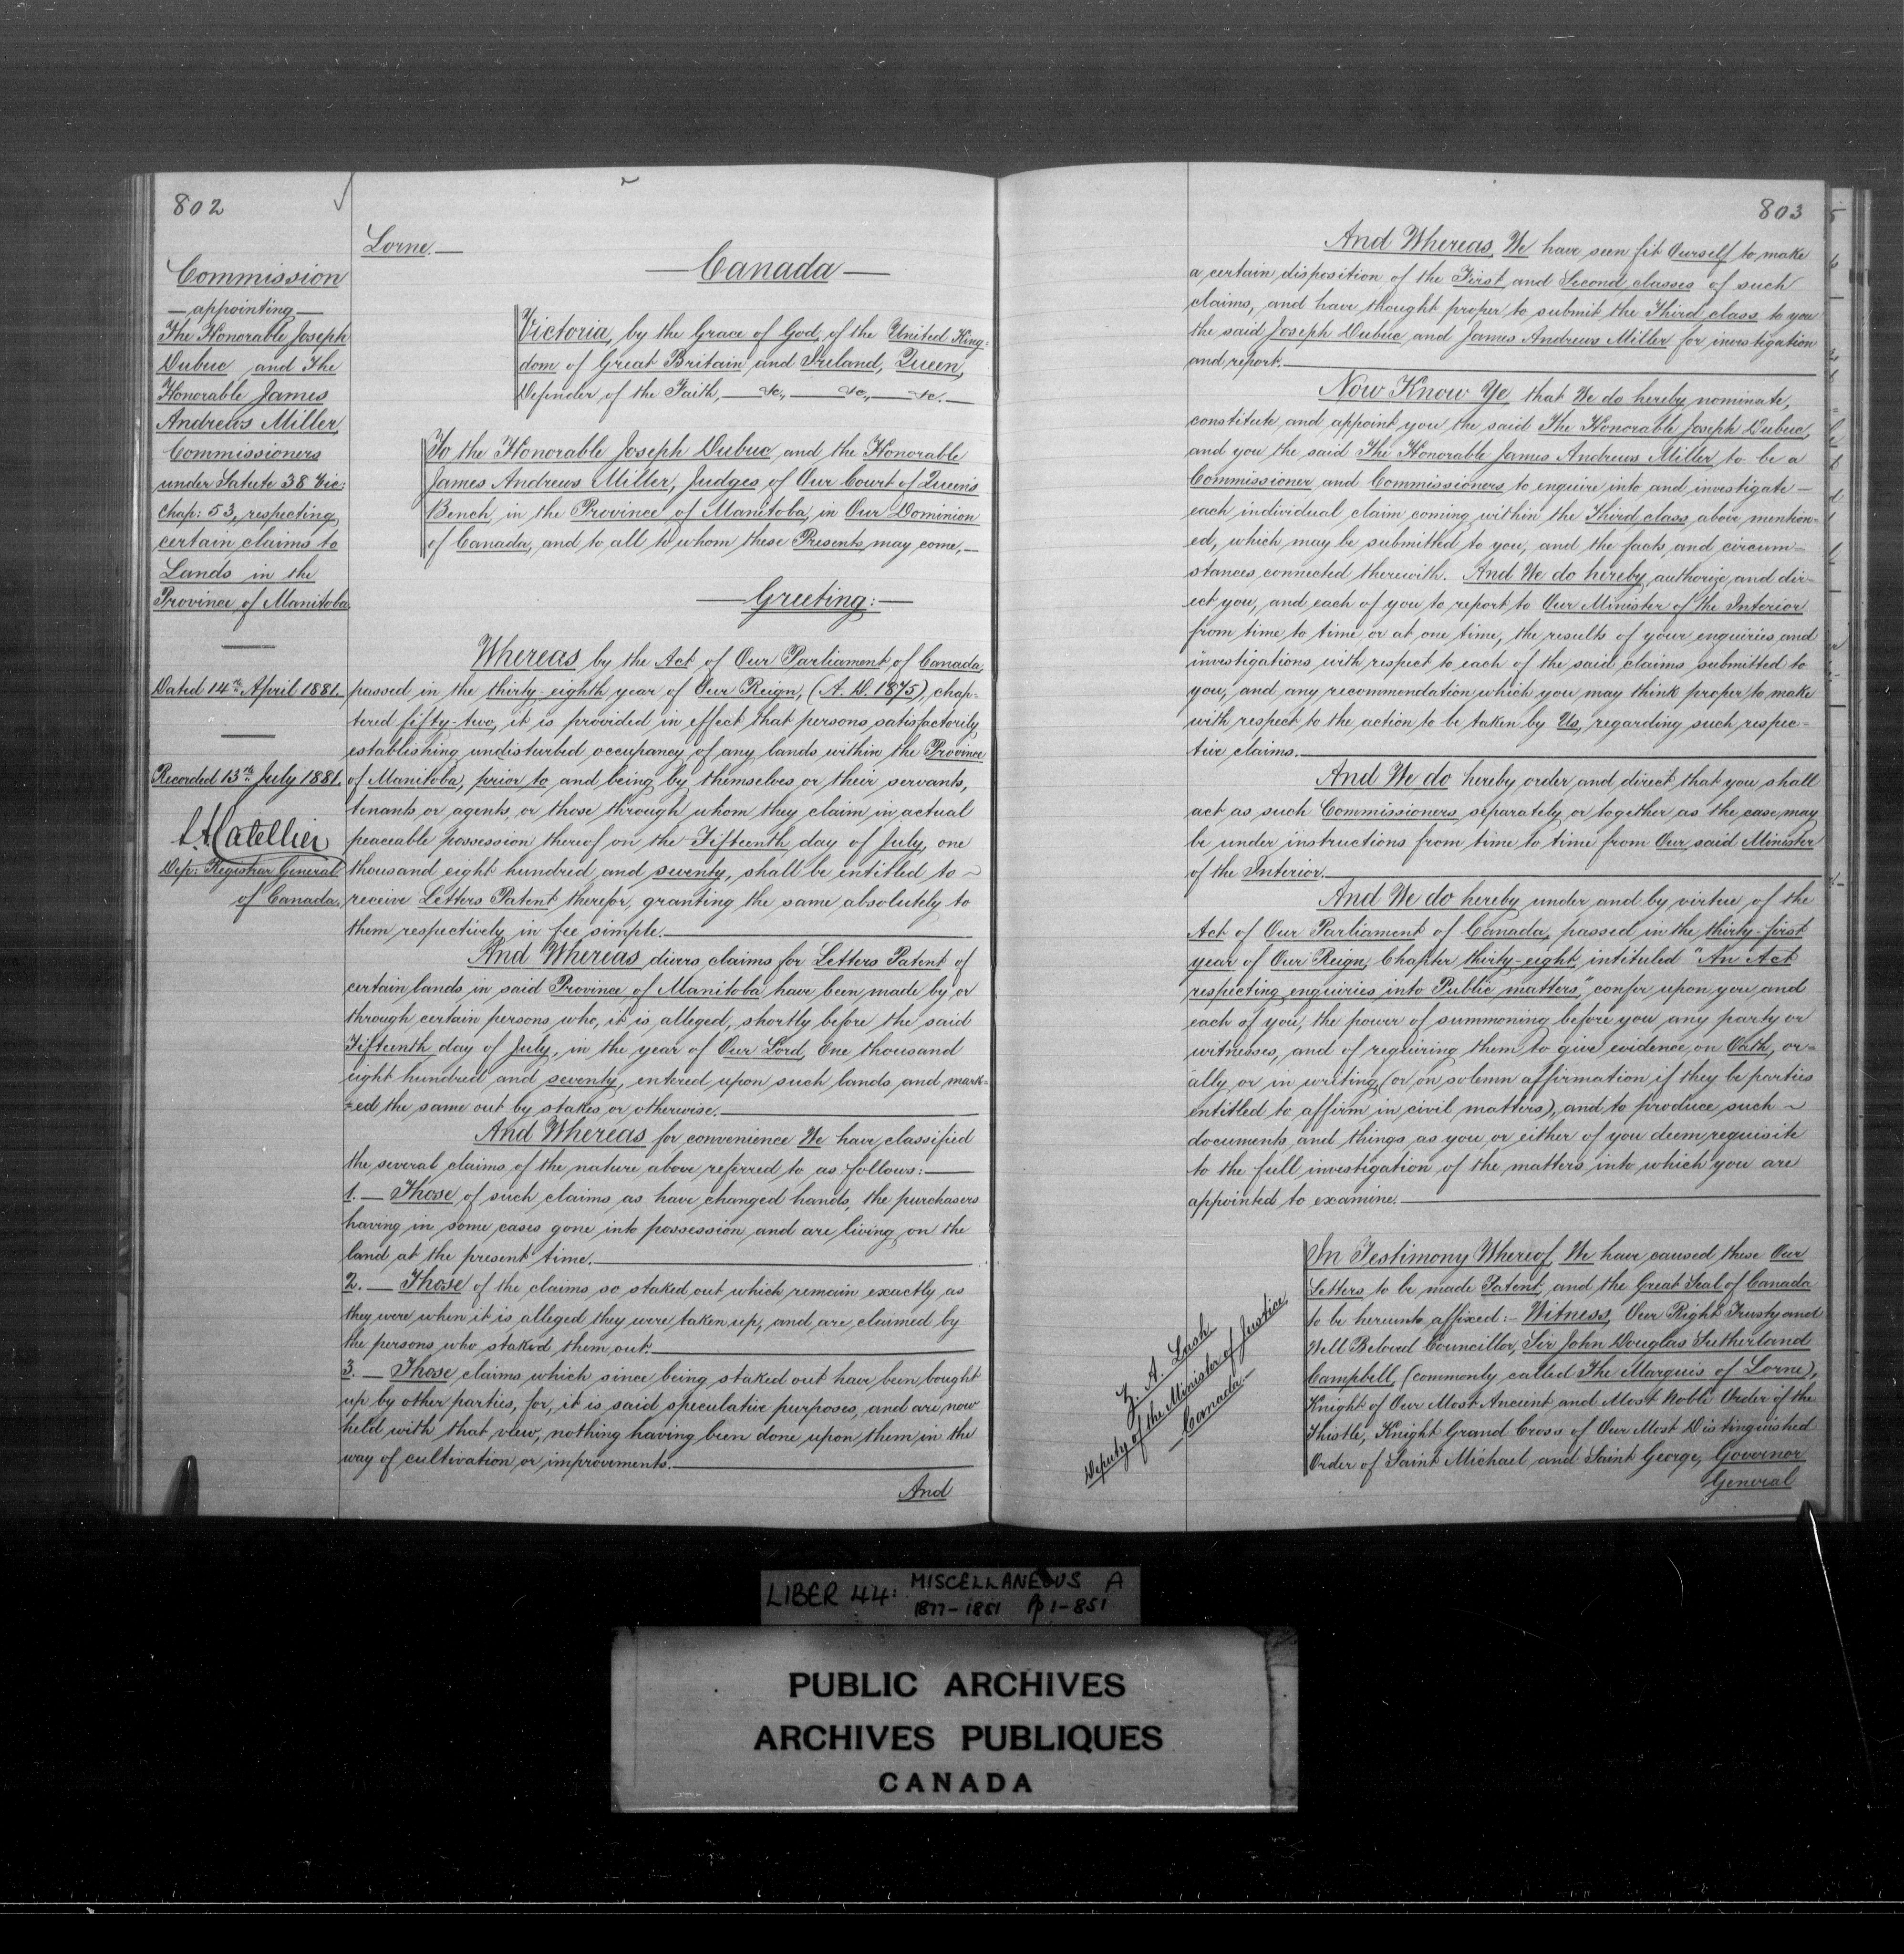 802
Commission
— appointing —
The Honorable Joseph
Dubuc and The
Honorable James
Andrews Miller,
Commissioners
under Satute 38 Vic:
Chap: 53, respecting
certain claims to
Lands in the
Province of Manitoba.
Dated 14th April 1881.
Recorded 13th July 1881.
L. A. Catellier
Dep: Registrar General
of Canada.
Lorne. —
— Canada —
Victoria, by the Grace of God, of the United King-
dom of Great Britain and Ireland, Queen,
Defender of the Faith, — &c., — &c., — &c. —
To the Honorable Joseph Dubuc and the Honorable
James Andrews Miller, Judges of Our Court of Queen's
Bench, in the Province of Manitoba, in Our Dominion
of Canada, and to all to whom these Presents may come, —
— Greeting: —
Whereas by the Act of Our Parliament of Canada,
passed in the thirty-eighth year of Our Reign, (A. D. 1875), chap-
tered fifty-two, it is provided in effect that persons satisfactorily
establishing undisturbed occupancy of any lands within the Province
of Manitoba, prior to and being by themselves or their servants,
tenants or agents, or those through whom they claim in actual
peaceable possession thereof on the Fifteenth day of July, one
thousand eight hundred and seventy, shall be entitled to ~
receive Letters Patent therefor, granting the same absolutely to
them respectively in fee simple. —
And Whereas divers claims for Letters Patent of
certain lands in said Province of Manitoba have been made by or
through certain persons who, it is alleged, shortly before the said
Fifteenth day of July, in the year of Our Lord, One thousand
eight hundred and seventy, entered upon such lands and mark-
=ed the same out by stakes or otherwise. —
And Whereas for convenience We have classified
the several claims of the nature above referred to as follows: —
1. — Those of such claims as have changed hands, the purchasers
having in some cases gone into possession and are living on the
land at the present time. —
2. — Those of the claims so staked out which remain exactly as
they were when it is alleged they were taken up, and are claimed by
the persons who staked them out. —
3. — Those claims which since being staked out have been bought
up by other parties, for, it is said speculative purposes, and are now
held with that view, nothing having been done upon them in the
way of cultivation or improvements. —
And
803
And Whereas, We have seen fit Ourself to make
a certain disposition of the First and Second classes of such
claims, and have thought proper to submit the Third class to you
the said Joseph Dubuc and James Andrews Miller for investigation
and report. —
Now Know Ye that We do hereby nominate,
constitute and appoint you the said The Honorable Joseph Dubuc,
and you the said The Honorable James Andrews Miller to be a
Commissioner and Commissioners to enquire into and investigate —
each individual claim coming within the Third class, above mention-
ed, which may be submitted to you, and the facts and circum-
stances connected therewith. And We do hereby authorize and dir-
ect you, and each of you to report to Our Minister of the Interior
from time to time or at one time, the results of your enquiries and
investigations with respect to each of the said claims submitted to
you, and any recommendation which you may think proper to make
with respect to the action to be taken by Us, regarding such respec-
tive claims. —
And We do hereby order and direct that you shall
act as such Commissioners separately or together as the case may
be under instructions from time to time from Our said Minister
of the Interior. —
And We do hereby under and by virtue of the
Act of Our Parliament of Canada, passed in the thirty-first
year of Our Reign, Chapter thirty-eight, intituled "An Act
respecting enquiries into Public matters," confer upon you and
each of you, the power of summoning before you any party or
witnesses, and of requiring them to give evidence on Oath, or-
ally or in writing (or on solemn affirmation if they be parties
entitled to affirm in civil matters), and to produce such ~
documents and things as you or either of you deem requisite
to the full investigation of the matters into which you are
appointed to examine. —
Z. A. Lash
Deputy of the Minister of Justice,
— Canada. —
In Testimony Whereof, We have caused these Our
Letters to be made Patent, and the Great Seal of Canada
to be hereunto affixed: — Witness, Our Right Trusty and
Well Beloved Councillor, Sir John Douglas Sutherland
Campbell, (commonly called The Marquis of Lorne),
Knight of Our Most Ancient and Most Noble Order of the
Thistle, Knight Grand Cross of Our Most Distinguished
Order of Saint Michael and Saint George, Governor
General
LIBER 44: MISCELLANEOUS A
1877-1881 Pp 1-851
PUBLIC ARCHIVES
ARCHIVES PUBLIQUES
CANADA